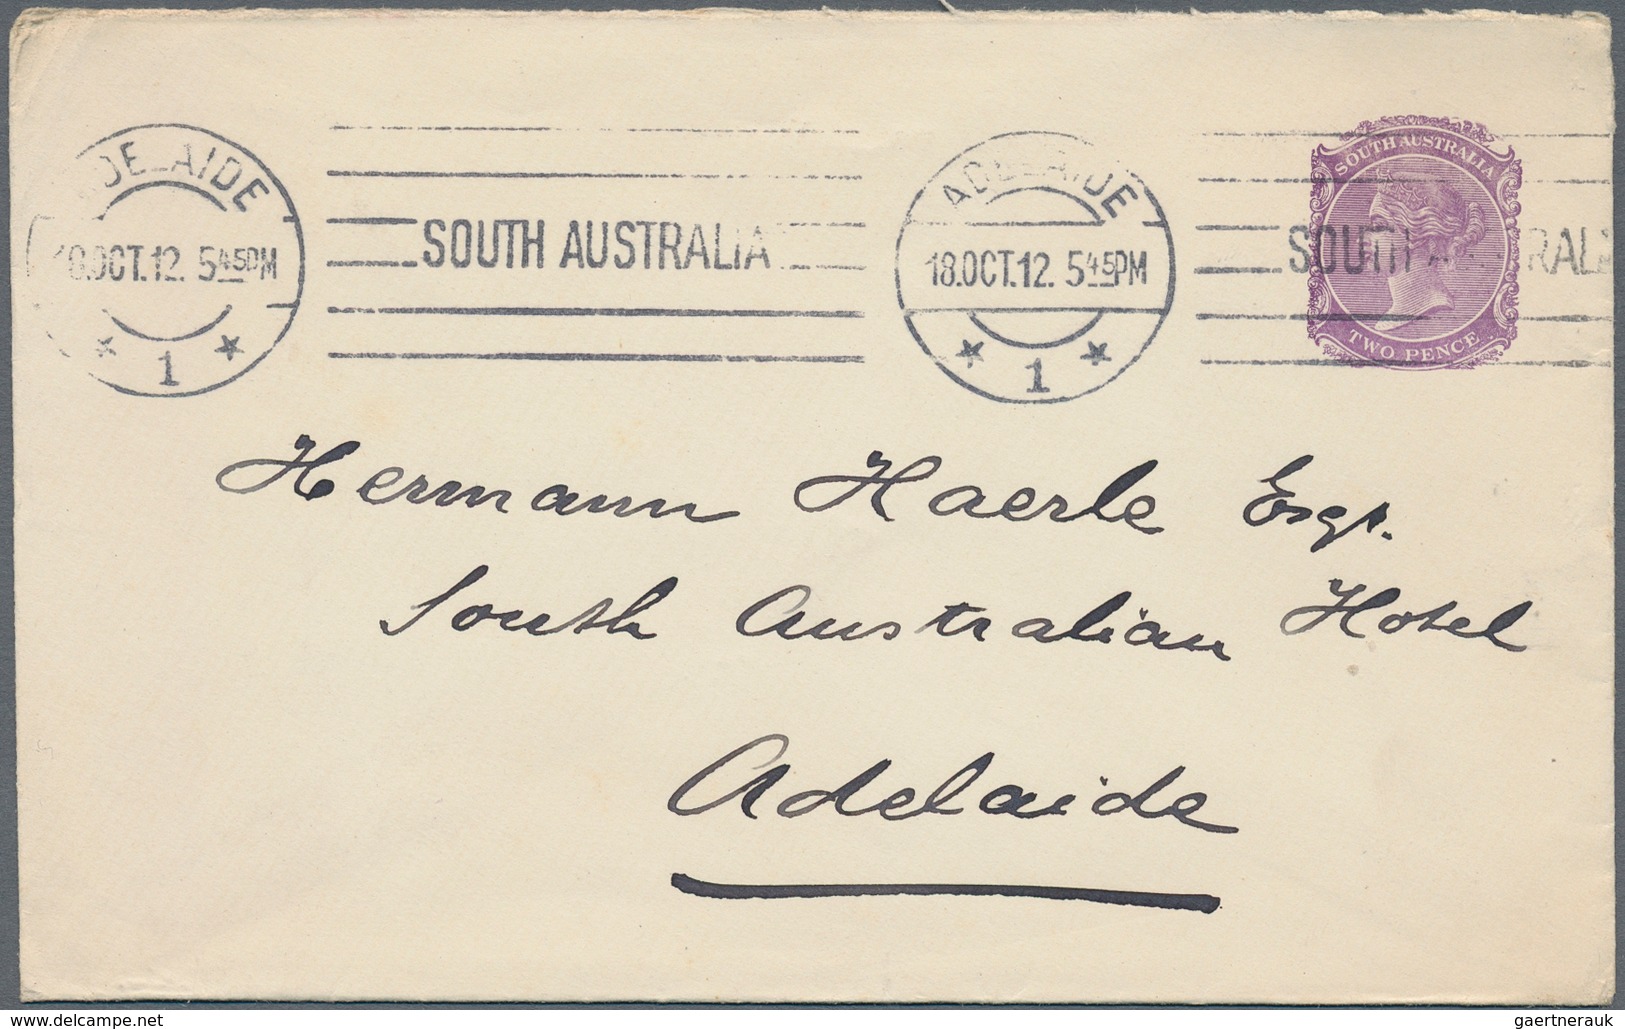 ADELAIDE
18.OCT.12. 545PM
* 1 *
SOUTH AUSTRALIA
ADELAIDE
18.OCT.12. 545PM
* 1 *
SOUTH AUSTRALIA
SOUTH AUSTRALIA
TWO PENCE
Hermann Haerle Esqr.
South Australian Hotel
Adelaide
www.delcampe.net
gaertnerauk